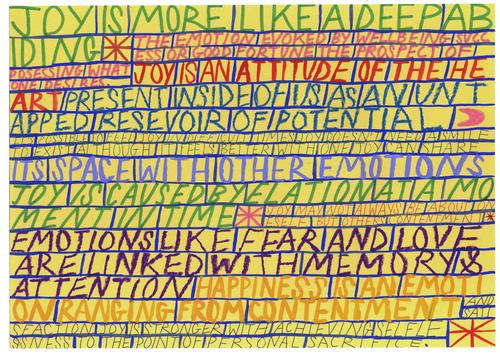 JOY IS MORE LIKE A DEEP AB
IDING THE EMOTION EVOKED BY WELLBEING SUCC
ESS OR GOOD FORTUNE THE PROSPECT OF
POSESSING WHAT
ONE DESIRES. JOY IS AN ATTITUDE OF THE HE
ART PRESENT INSIDE OF US AS AN UNT
APPED RESEVOIR OF POTENTIAL
JOY IN DIFFICULT TIMES JOY
TO EXIST ALTHOUGH IT FEELS BETTER WITH ONE JOY CAN SHARE
ITS SPACE WITH OTHER EMOTIONS
JOY IS CAUSED BY ELATION AT A MO
MENT IN TIME JOY MAY NOT ALWAYS BE ABOUT ON
ESELF BUT OTHERS CONTENTMENT
EMOTIONS LIKE FEAR AND LOVE
ARE LINKED WITH MEMORY &
ATTENTION HAPPINESS IS AN EMOTI
ON RANGING FROM CONTENTMENT AND
SATI
SFACTION JOY IS STRONGER WITH SELFLE
SSNESS TO THE POINT OF PERSONAL SACRIFICE.